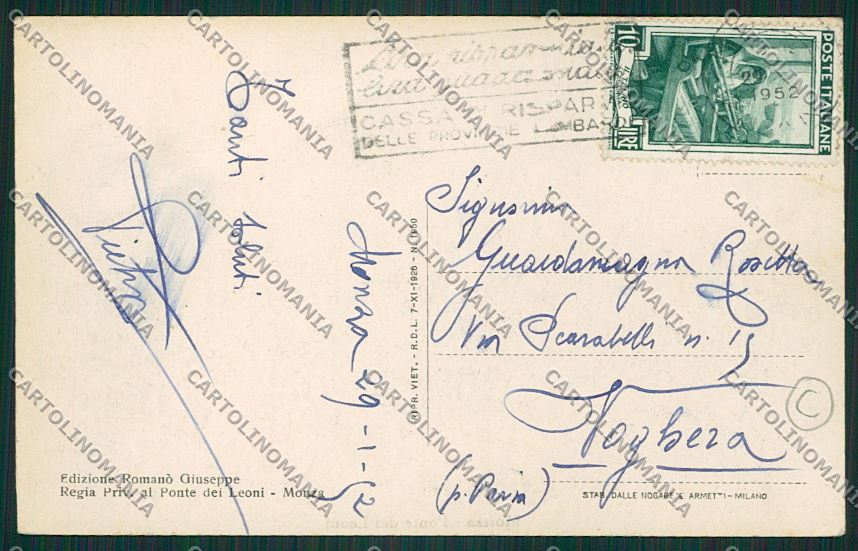 Tanti saluti
Pietro
Monza 29-1-52
Edizione Romanò Giuseppe
Regia Priv. al Ponte dei Leoni - Monza
RIPR. VIET. - R.D.L. 7-XI-1925 - N. 1950
CASSA DI RISPAR
DELLE PROVINCIE LOMBARD
10
LIRE
POSTE ITALIANE
29
1952
Signorina
Guardamagna Rosetta
Via Scarabelli n. 15
Voghera
(p. Pavia)
C
STAB. DALLE NOGARE E ARMETTI - MILANO
CARTOLINOMANIA